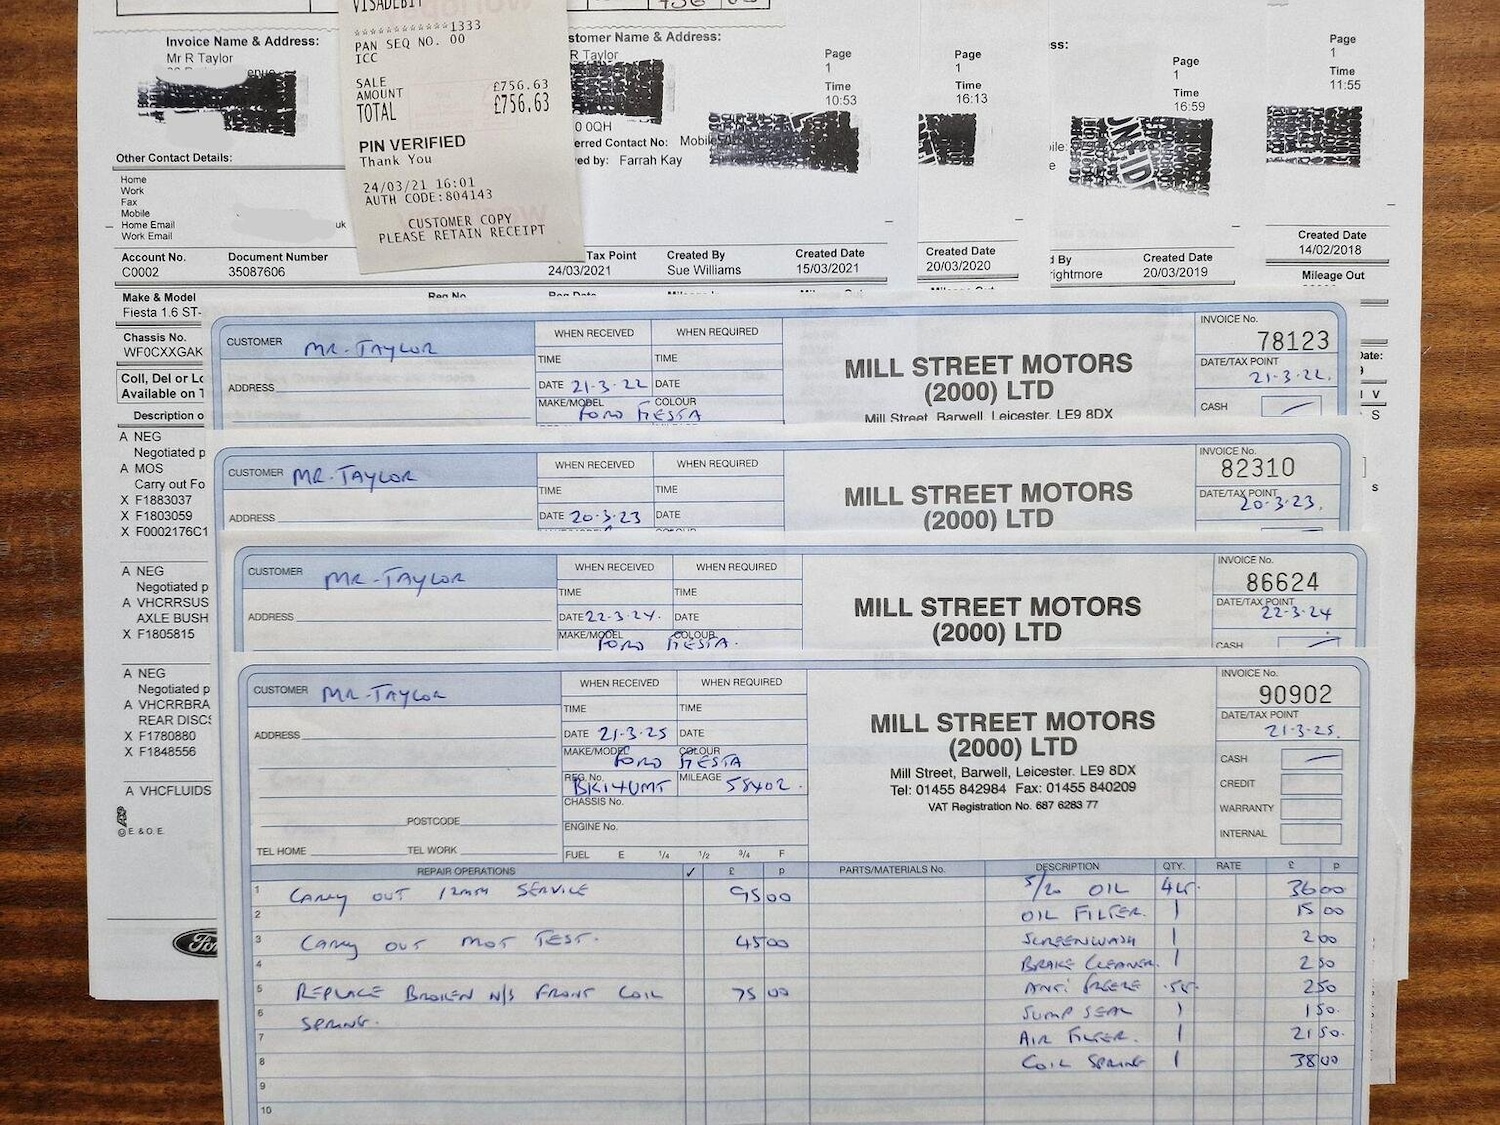 VISADEBIT
************1333
PAN SEQ NO. 00
ICC
SALE
AMOUNT £756.63
TOTAL £756.63
PIN VERIFIED
Thank You
24/03/21 16:01
AUTH CODE:804143
CUSTOMER COPY
PLEASE RETAIN RECEIPT
Invoice Name & Address:
Mr R Taylor
Other Contact Details:
Home
Work
Fax
Mobile
Home Email uk
Work Email
Account No. Document Number
C0002 35087606
stomer Name & Address:
R Taylor
0 0QH
erred Contact No: Mobile
ved by: Farrah Kay
Page
1
Time
10:53
Tax Point Created By Created Date
24/03/2021 Sue Williams 15/03/2021
Page
1
Time
16:13
Created Date
20/03/2020
ss:
Page
1
Time
16:59
d By Created Date
rightmore 20/03/2019
Page
1
Time
11:55
Created Date
14/02/2018
Mileage Out
Make & Model Reg No Reg Date
Fiesta 1.6 ST-
Chassis No.
WF0CXXGAK
Coll, Del or Lo
Available on T
Description o
A NEG
Negotiated p
A MOS
Carry out Fo
X F1883037
X F1803059
X F0002176C1
A NEG
Negotiated p
A VHCRRSUS
AXLE BUSH
X F1805815
A NEG
Negotiated p
A VHCRRBRA
REAR DISCS
X F1780880
X F1848556
A VHCFLUIDS
© E. & O. E.
Ford
CUSTOMER MR-TAYLOR
ADDRESS
WHEN RECEIVED WHEN REQUIRED
TIME TIME
DATE 21-3-22 DATE
MAKE/MODEL COLOUR
FORD FIESTA
MILL STREET MOTORS
(2000) LTD
Mill Street, Barwell, Leicester. LE9 8DX
INVOICE No.
78123
DATE/TAX POINT
21-3-22.
CASH
CUSTOMER MR-TAYLOR
ADDRESS
WHEN RECEIVED WHEN REQUIRED
TIME TIME
DATE 20-3-23 DATE
MILL STREET MOTORS
(2000) LTD
INVOICE No.
82310
DATE/TAX POINT
20-3-23.
CUSTOMER MR-TAYLOR
ADDRESS
WHEN RECEIVED WHEN REQUIRED
TIME TIME
DATE 22-3-24. DATE
MAKE/MODEL COLOUR
FORD FIESTA.
MILL STREET MOTORS
(2000) LTD
INVOICE No.
86624
DATE/TAX POINT
22-3-24
CASH
CUSTOMER MR-TAYLOR
ADDRESS
POSTCODE
TEL HOME TEL WORK
WHEN RECEIVED WHEN REQUIRED
TIME TIME
DATE 21-3-25 DATE
MAKE/MODEL COLOUR
FORD FIESTA
REG. No. BK14UMT MILEAGE 58402.
CHASSIS No.
ENGINE No.
FUEL E 1/4 1/2 3/4 F
MILL STREET MOTORS
(2000) LTD
Mill Street, Barwell, Leicester. LE9 8DX
Tel: 01455 842984 Fax: 01455 840209
VAT Registration No. 687 6283 77
INVOICE No.
90902
DATE/TAX POINT
21-3-25.
CASH
CREDIT
WARRANTY
INTERNAL
REPAIR OPERATIONS ✓ £ p
1 CARRY OUT 12MTH SERVICE 95 00
2
3 CARRY OUT MOT TEST. 45 00
4
5 REPLACE BROKEN N/S FRONT COIL 75 00
6 SPRING.
7
8
9
10
PARTS/MATERIALS No. DESCRIPTION QTY. RATE £ p
5/20 OIL 4LT. 36 00
OIL FILTER. 1 15 00
SCREENWASH 1 2 00
BRAKE CLEANER. 1 2 50
ANTI FREEZE .5LT. 2 50
SUMP SEAL 1 1 50.
AIR FILTER. 1 21 50.
COIL SPRING 1 38 00